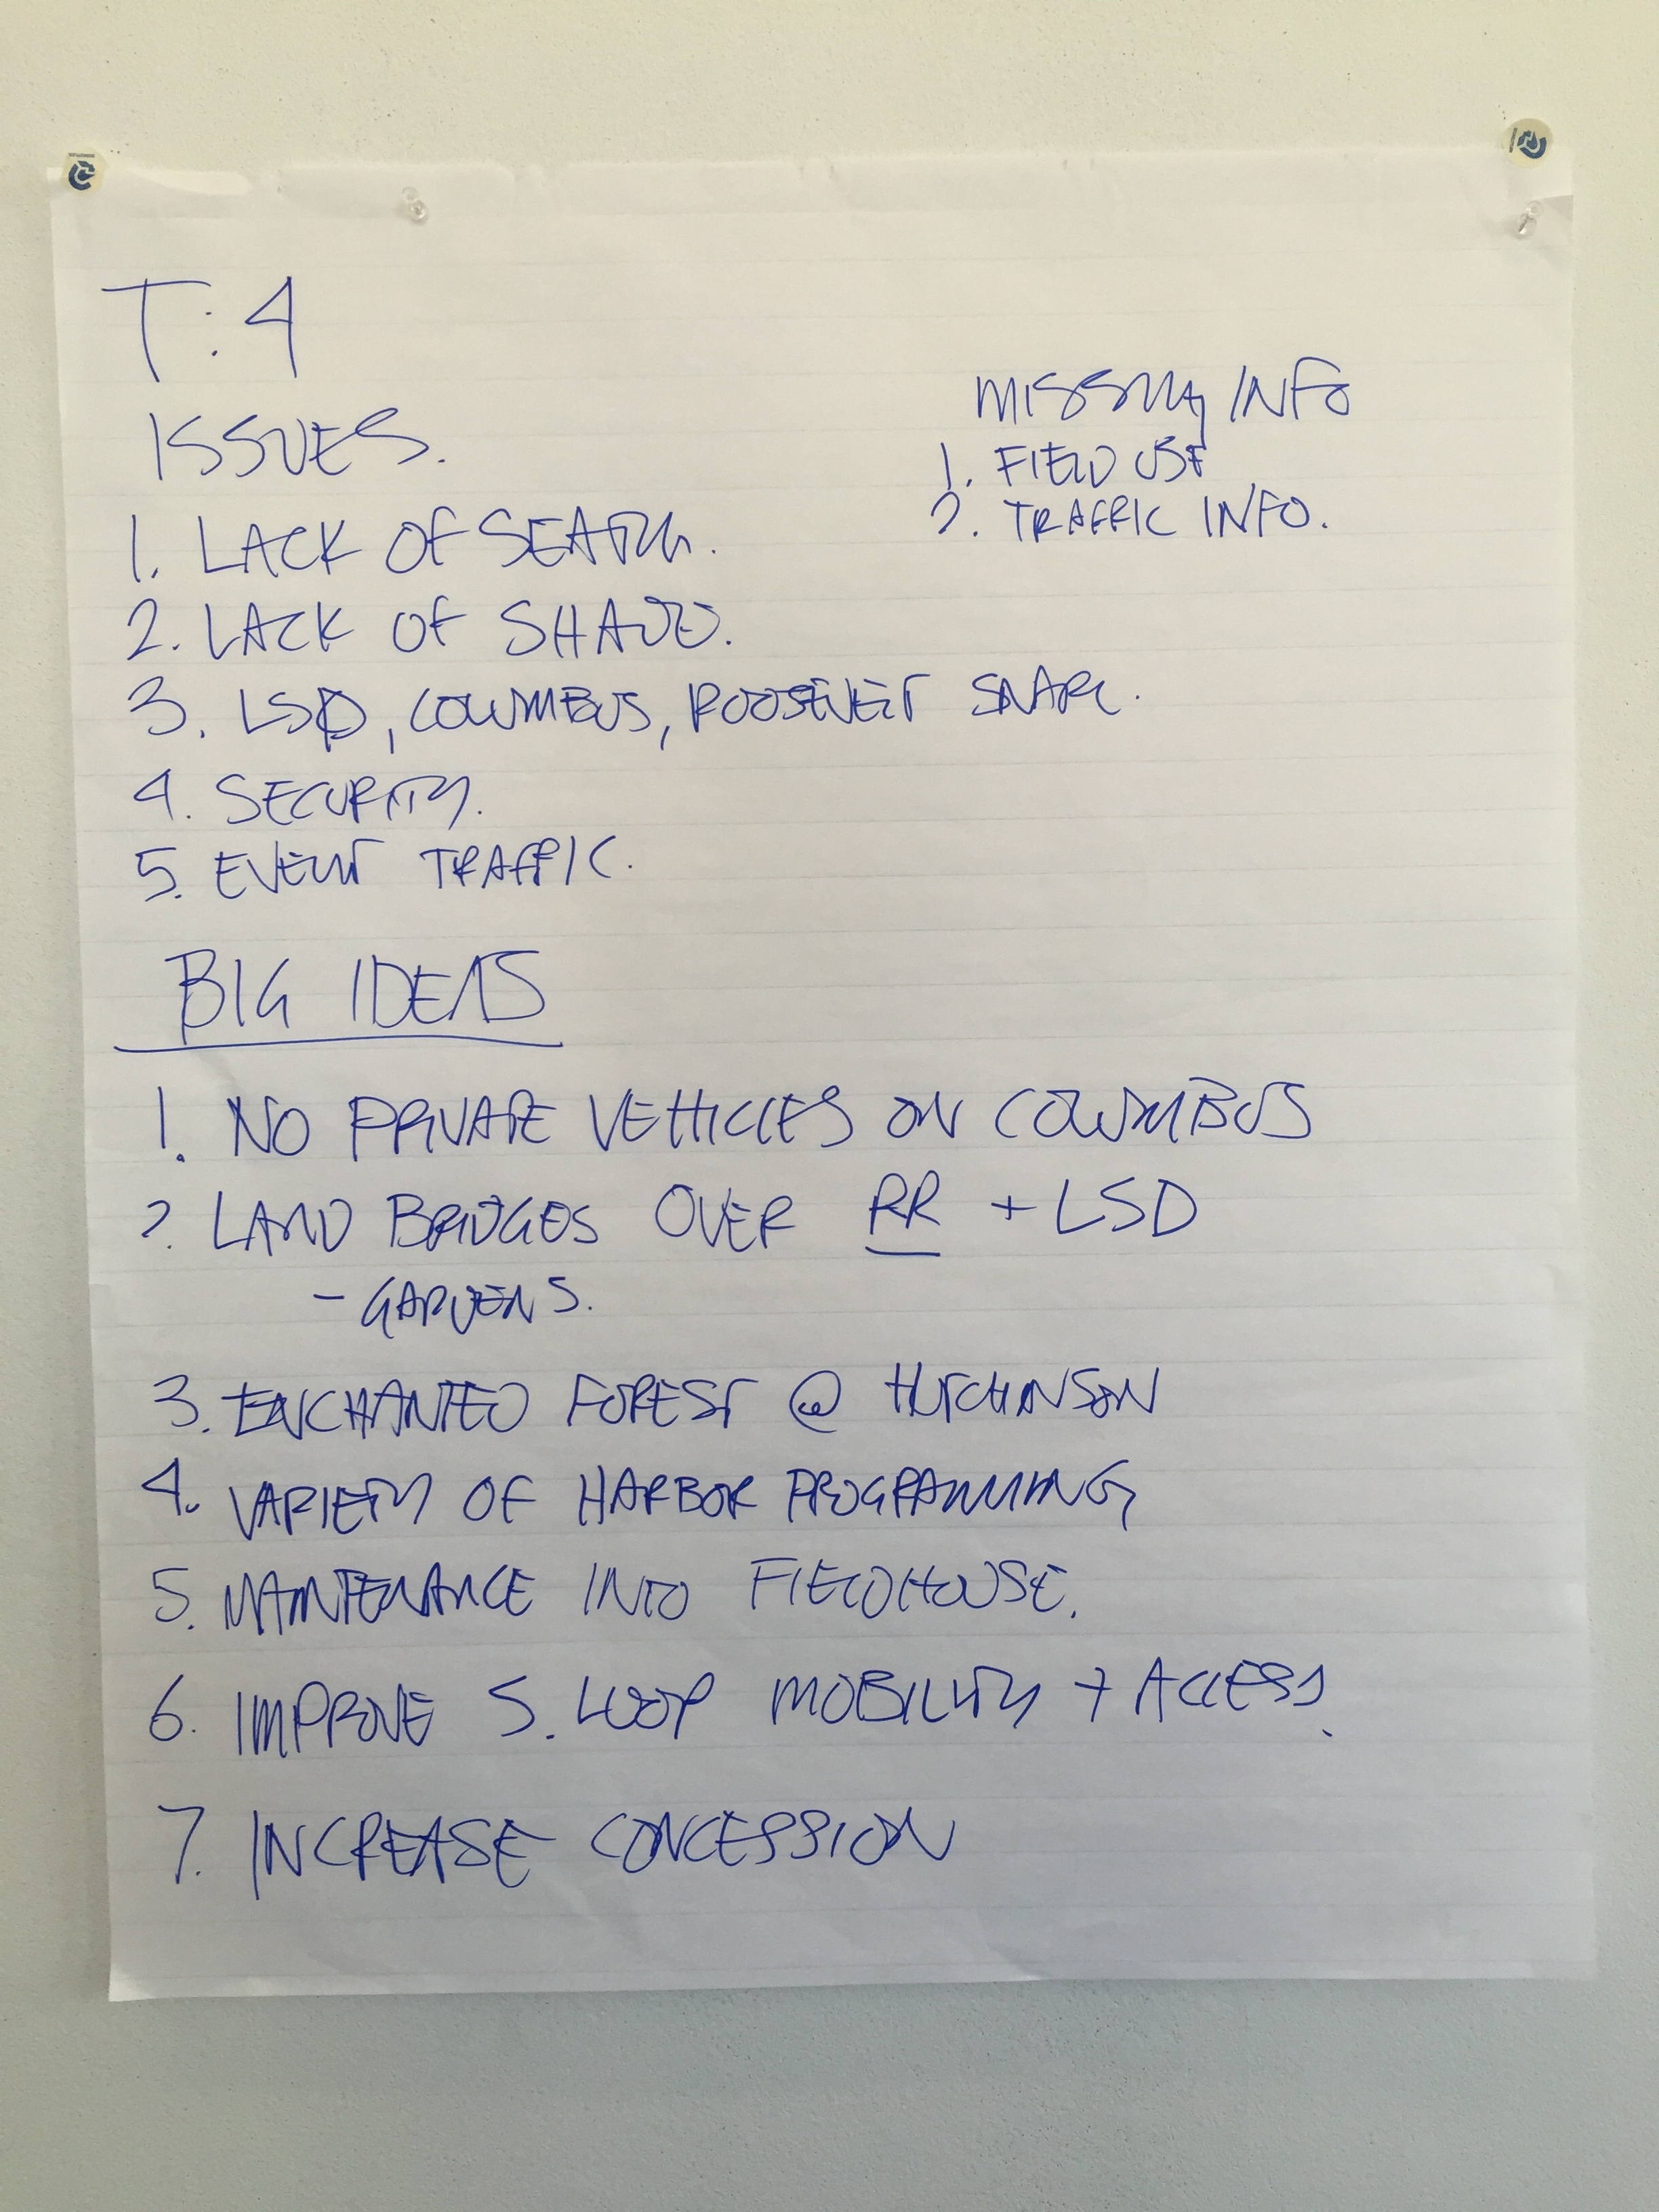 T:4
ISSUES.
1. LACK OF SEATING.
2. LACK OF SHADE.
3. LSD, COLUMBUS, ROOSEVELT SNARL.
4. SECURITY.
5. EVENT TRAFFIC.
MISSING INFO
1. FIELD USE
2. TRAFFIC INFO.
BIG IDEAS
1. NO PRIVATE VEHICLES ON COLUMBUS
2. LAND BRIDGES OVER RR + LSD
- GARDENS.
3. ENCHANTED FOREST @ HUTCHINSON
4. VARIETY OF HARBOR PROGRAMMING
5. MAINTENANCE INTO FIELDHOUSE.
6. IMPROVE S. LOOP MOBILITY + ACCESS.
7. INCREASE CONCESSION